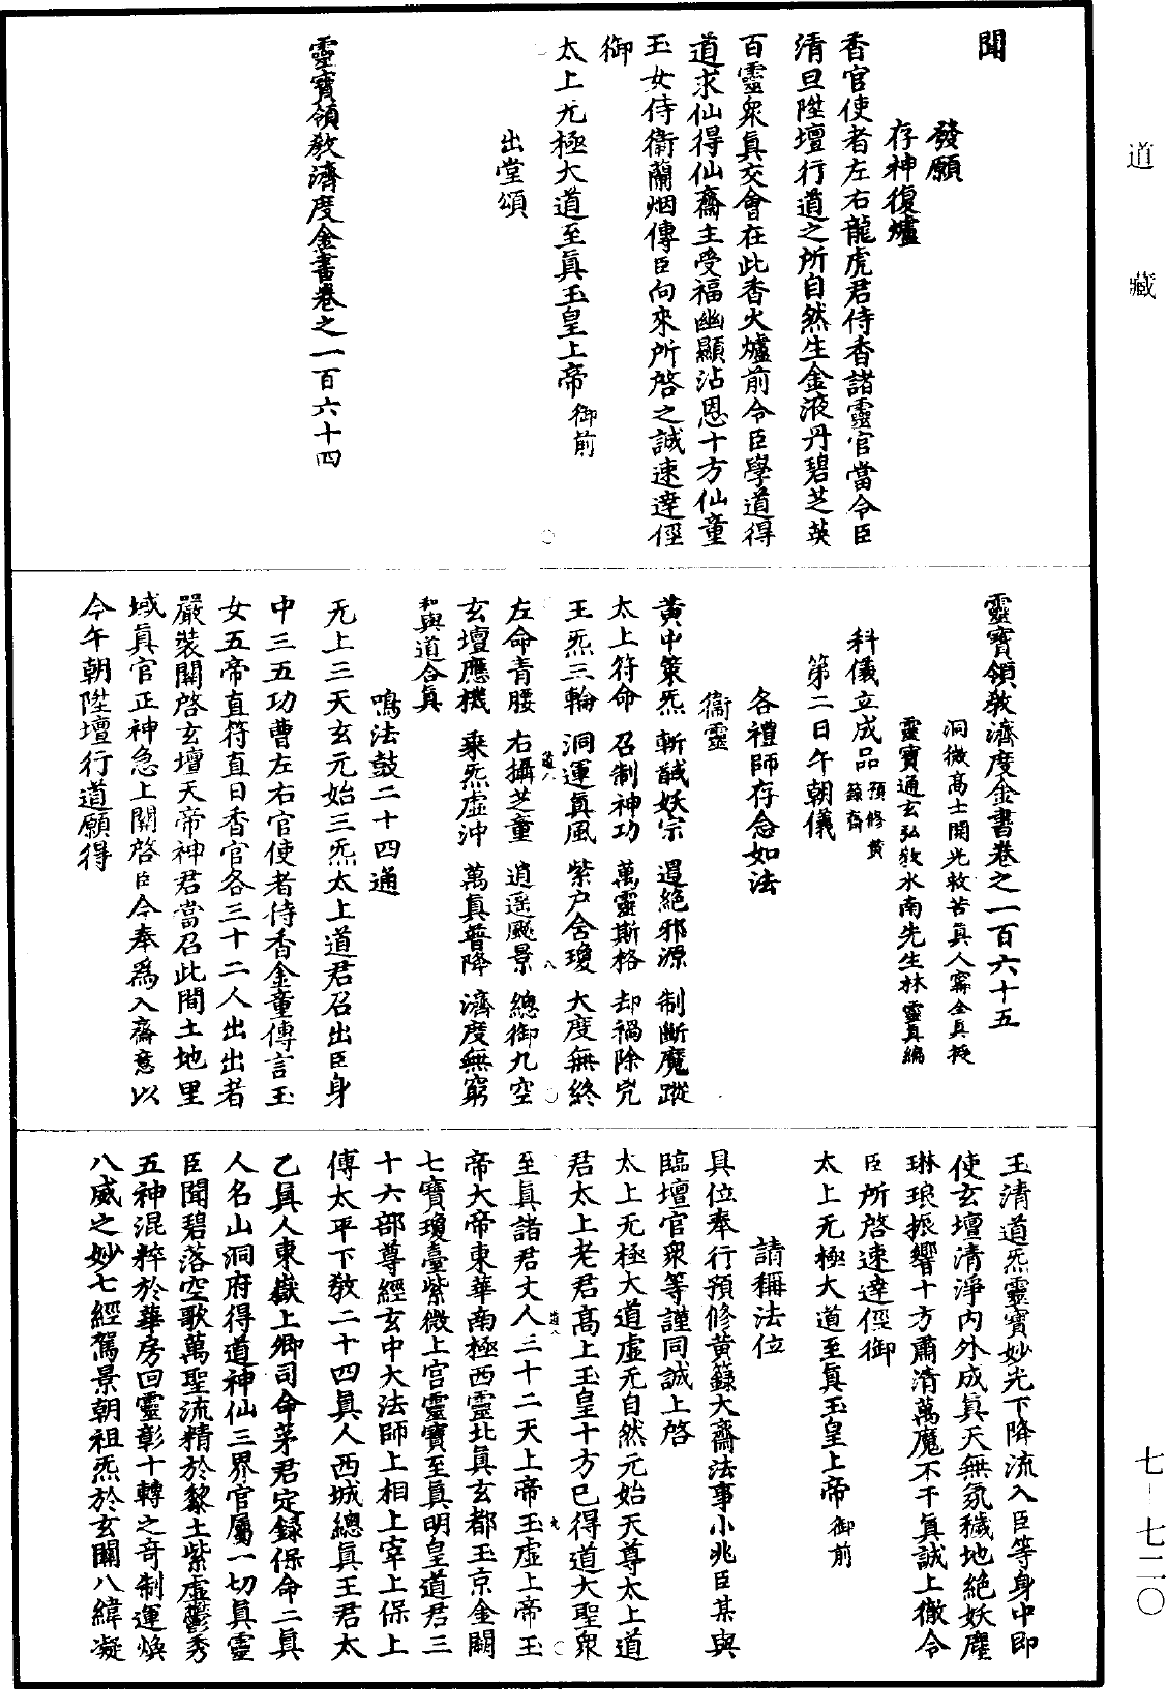 聞
發願
存神復爐
香官使者左右龍虎君侍香諸靈官當令臣
清旦陞壇行道之所自然生金液丹碧芝英
百靈衆眞交會在此香火爐前令臣學道得
道求仙得仙齋主受福幽顯沾恩十方仙童
玉女侍衛蘭烟傳臣向來所啓之誠速達徑
御
太上无極大道至眞玉皇上帝御前
出堂頌
靈寶領敎濟度金書卷之一百六十四
靈寶領敎濟度金書卷之一百六十五
洞微高士開光救苦眞人甯全眞授
靈寶通玄弘敎水南先生林靈眞編
科儀立成品預修黃籙齋
第二日午朝儀
各禮師存念如法
衞靈
黃中策炁 斬馘妖宗 遏絶邪源 制斷魔蹤
太上符命 召制神功 萬靈斯格 却禍除兇
王炁三輪 洞運眞風 紫户含瓊 大度無終
左命青腰 右攝芝童 逍遥飈景 總御九空
玄壇應機 乘炁虛沖 萬眞普降 濟度無窮
和與道合眞
鳴法鼓二十四通
无上三天玄元始三炁太上道君召出臣身
中三五功曹左右官使者侍香金童傳言玉
女五帝直符直日香官各三十二人出出者
嚴裝關啓玄壇天帝神君當召此間土地里
域眞官正神急上關啓臣今奉爲入齋意以
今午朝陞壇行道願得
玉清道炁靈寶妙光下降流入臣等身中即
使玄壇清淨内外成眞天無氛穢地絶妖塵
琳琅振響十方肅清萬魔不干眞誠上徹令
臣所啓速達徑御
太上无極大道至眞玉皇上帝御前
請稱法位
具位奉行預修黃籙大齋法事小兆臣某與
臨壇官衆等謹同誠上啓
太上无極大道虛无自然元始天尊太上道
君太上老君高上玉皇十方已得道大聖衆
至眞諸君丈人三十二天上帝玉虛上帝玉
帝大帝東華南極西靈北眞玄都玉京金闕
七寶瓊臺紫微上宫靈寶至眞明皇道君三
十六部尊經玄中大法師上相上宰上保上
傅太平下敎二十四眞人西城總眞王君太
乙眞人東嶽上卿司命茅君定録保命二眞
人名山洞府得道神仙三界官屬一切眞靈
臣聞碧落空歌萬聖流精於黎土紫虛鬱秀
五神混粹於華房回靈彰十轉之奇制運煥
八威之妙七經駕景朝祖炁於玄關八緯凝
道藏
七－七二〇